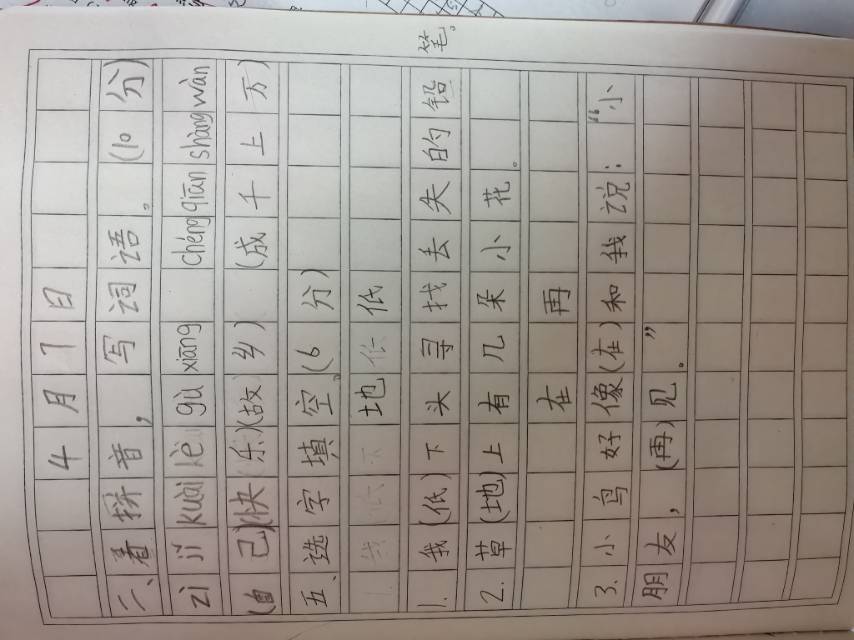 4月7日
二、看拼音，写词语。(10分)
zì jǐ kuài lè gù xiāng chéng qiān shàng wàn
(自己)(快乐)(故乡)(成千上万)
五、选字填空。(6分)
地 低
1. 我(低)下头寻找丢失的铅
笔。
2. 草(地)上有几朵小花。
在 再
3. 小鸟好像(在)和我说：“小
朋友，(再)见。”